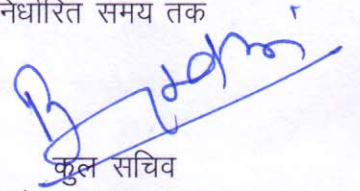 निर्धारित समय तक
कुल सचिव